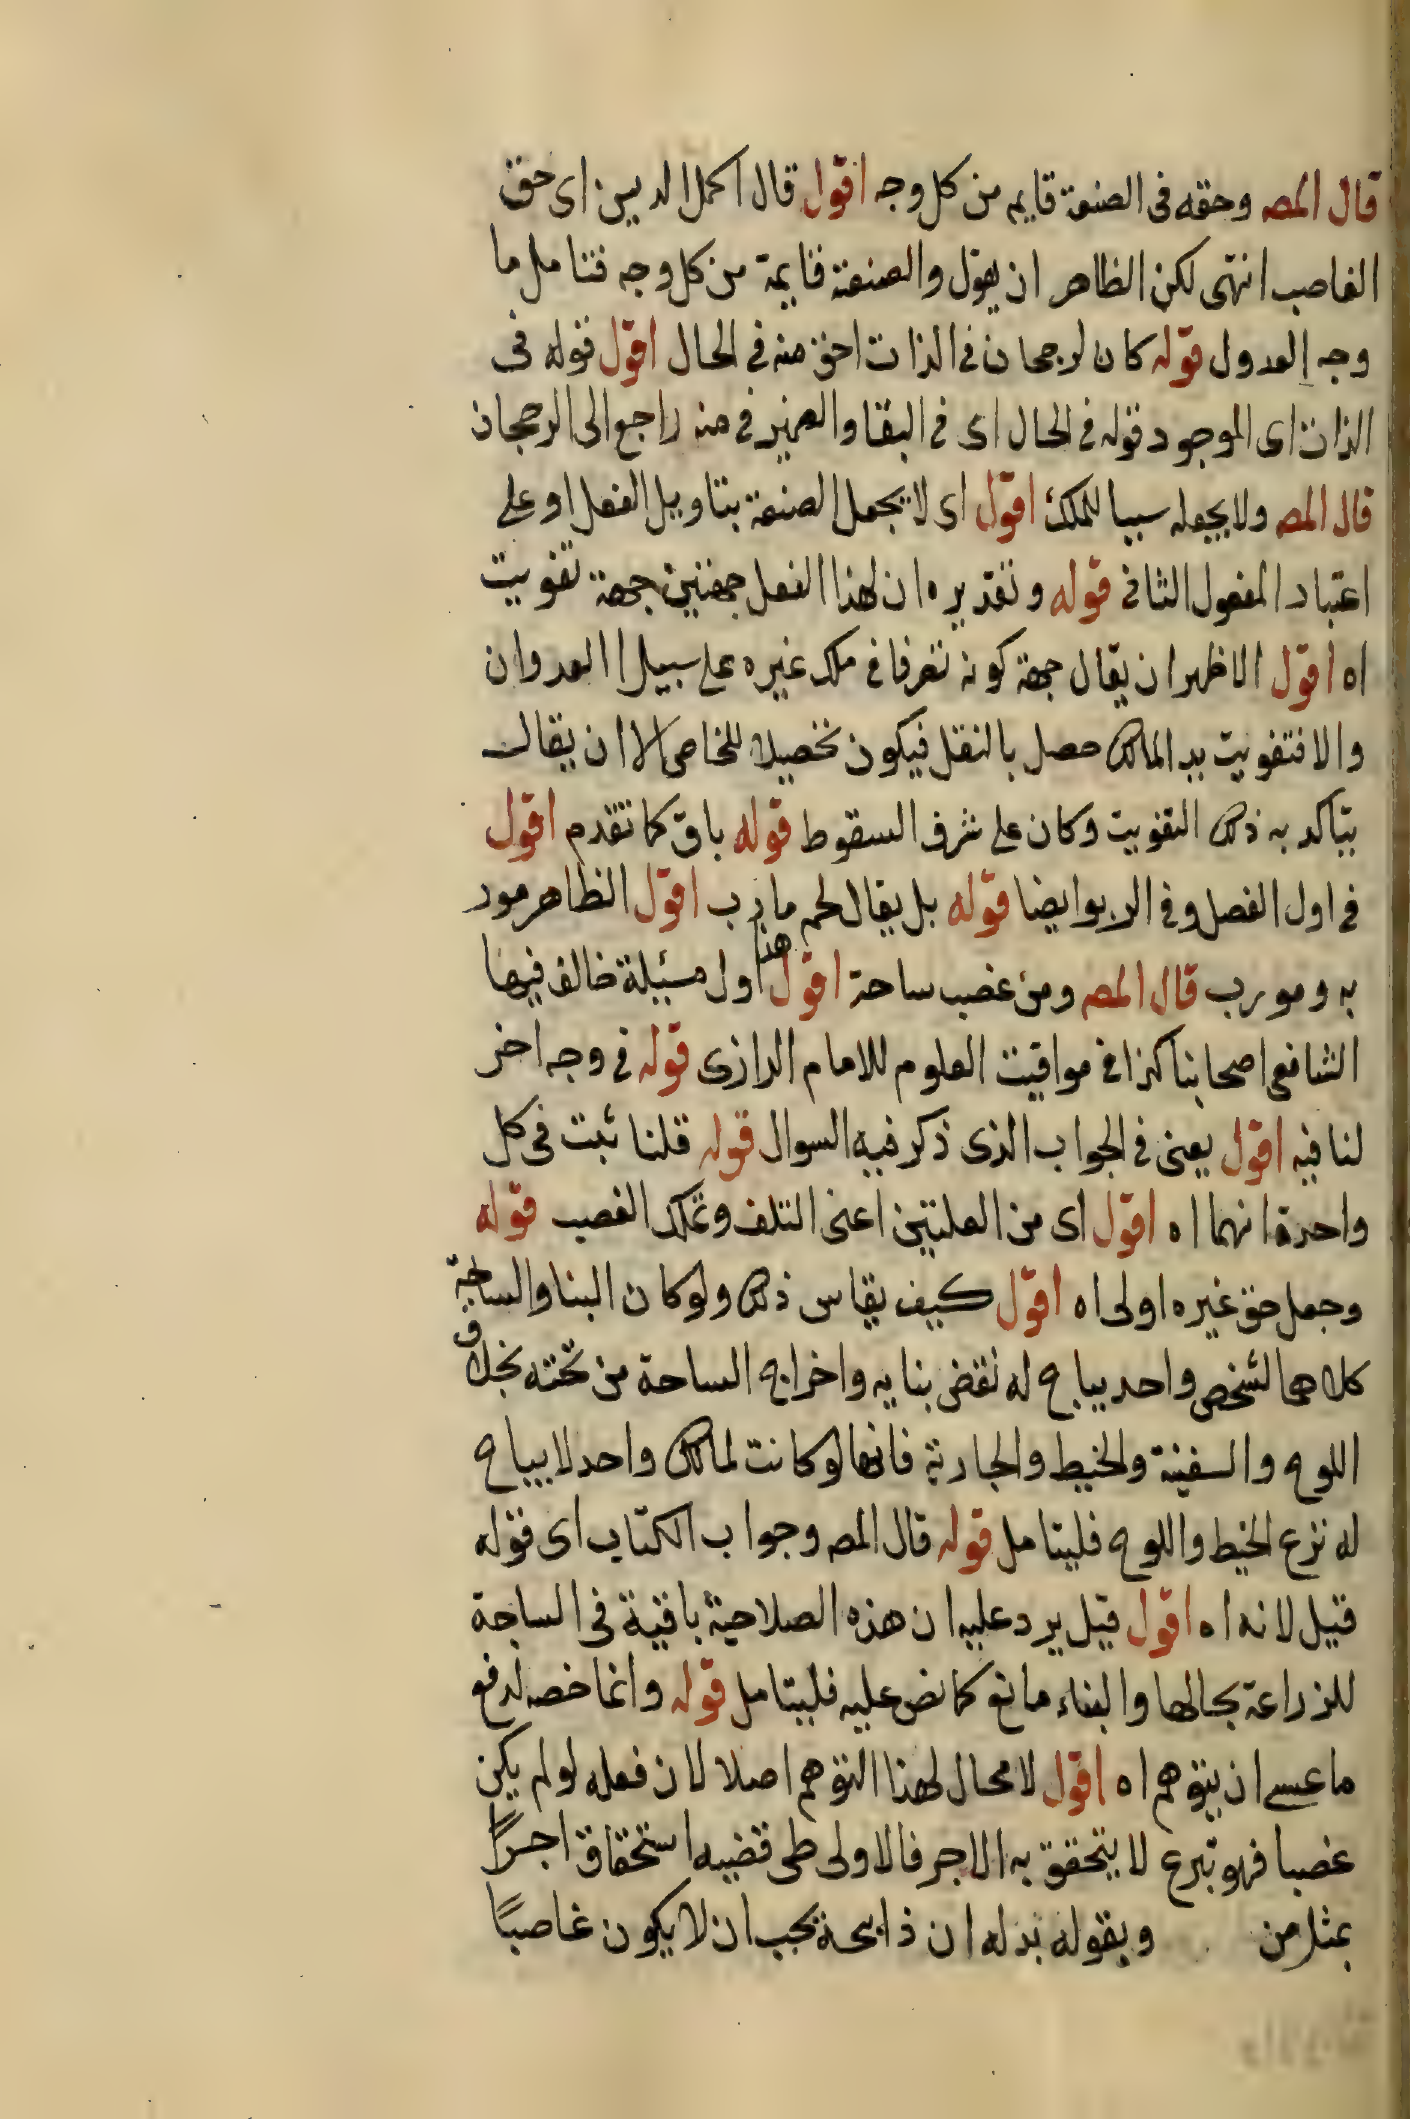 قال المصه وحقه فى الصنعة قايم من كل وجه اقول قال اكمل الدين اى حق
الغاصب انتهى لكن الظاهر ان يقول والصنعة قايمة من كل وجه فتامل ما
وجه العدول قوله كان لرجحان فى الذات احق منه فى الحال اقول قوله فى
الذات اى الموجود قوله فى الحال اى فى البقا والضمير فى منه راجع الى الرجحان
قال المصه ولا يجعله سببا للملك اقول اى لا يجعل الصنعة بتاويل الفعل او على
اعتبار المفعول الثانى قوله وتقديره ان لهذا الفعل جهتين جهة تفويت
اه اقول الاظهر ان يقال جهة كونه تصرفا فى ملك غيره على سبيل العدوان
والا فتفويت يد المالك حصل بالنقل فيكون تحصيلا للحاصل الا ان يقال
يتاكد به ذلك التفويت وكان على شرف السقوط قوله باق كما تقدم اقول
فى اول الفصل وفى الربوا ايضا قوله بل يقال لحم مارب اقول الظاهر مود
به ومورب قال المصه ومن غصب ساحة اقول هذا اول مسئيلة خالف فيها
الشافعى اصحابنا كذا فى مواقيت العلوم للامام الرازى قوله فى وجه اخر
لنا فيه اقول يعنى فى الجواب الذى ذكر فيه السوال قوله قلنا ثبت فى كل
واحدة انهما اه اقول اى من العلتين اعنى التلف وتملك الغصب قوله
وجعل حق غيره اولى اه اقول كيف يقاس ذلك ولو كان البنا والساحة
كلاهما لشخص واحد يباح له نقض بنايه واخراج الساحة من تحته بخلاف
اللوح والسفينة والخيط والجارية فانها لو كانت لمالك واحد لا يباح
له نزع الخيط واللوح فليتامل قوله قال المصه وجواب الكتاب اى قوله
قيل لانه اه اقول قيل يرد عليه ان هذه الصلاحية باقية فى الساحة
للزراعة بحالها والبناء مانع كما نص عليه فليتامل قوله وانما خصه لدفع
ما عسى ان يتوهم اه اقول لا محال لهذا التوهم اصلا لان فعله لو لم يكن
غصبا فهو تبرع لا يتحقق به الاجر فالاولى طى قضيه استحقاق اجرًا
بمثل من ويقوله بدله ان ذابحة يجب ان لا يكون غاصبًا